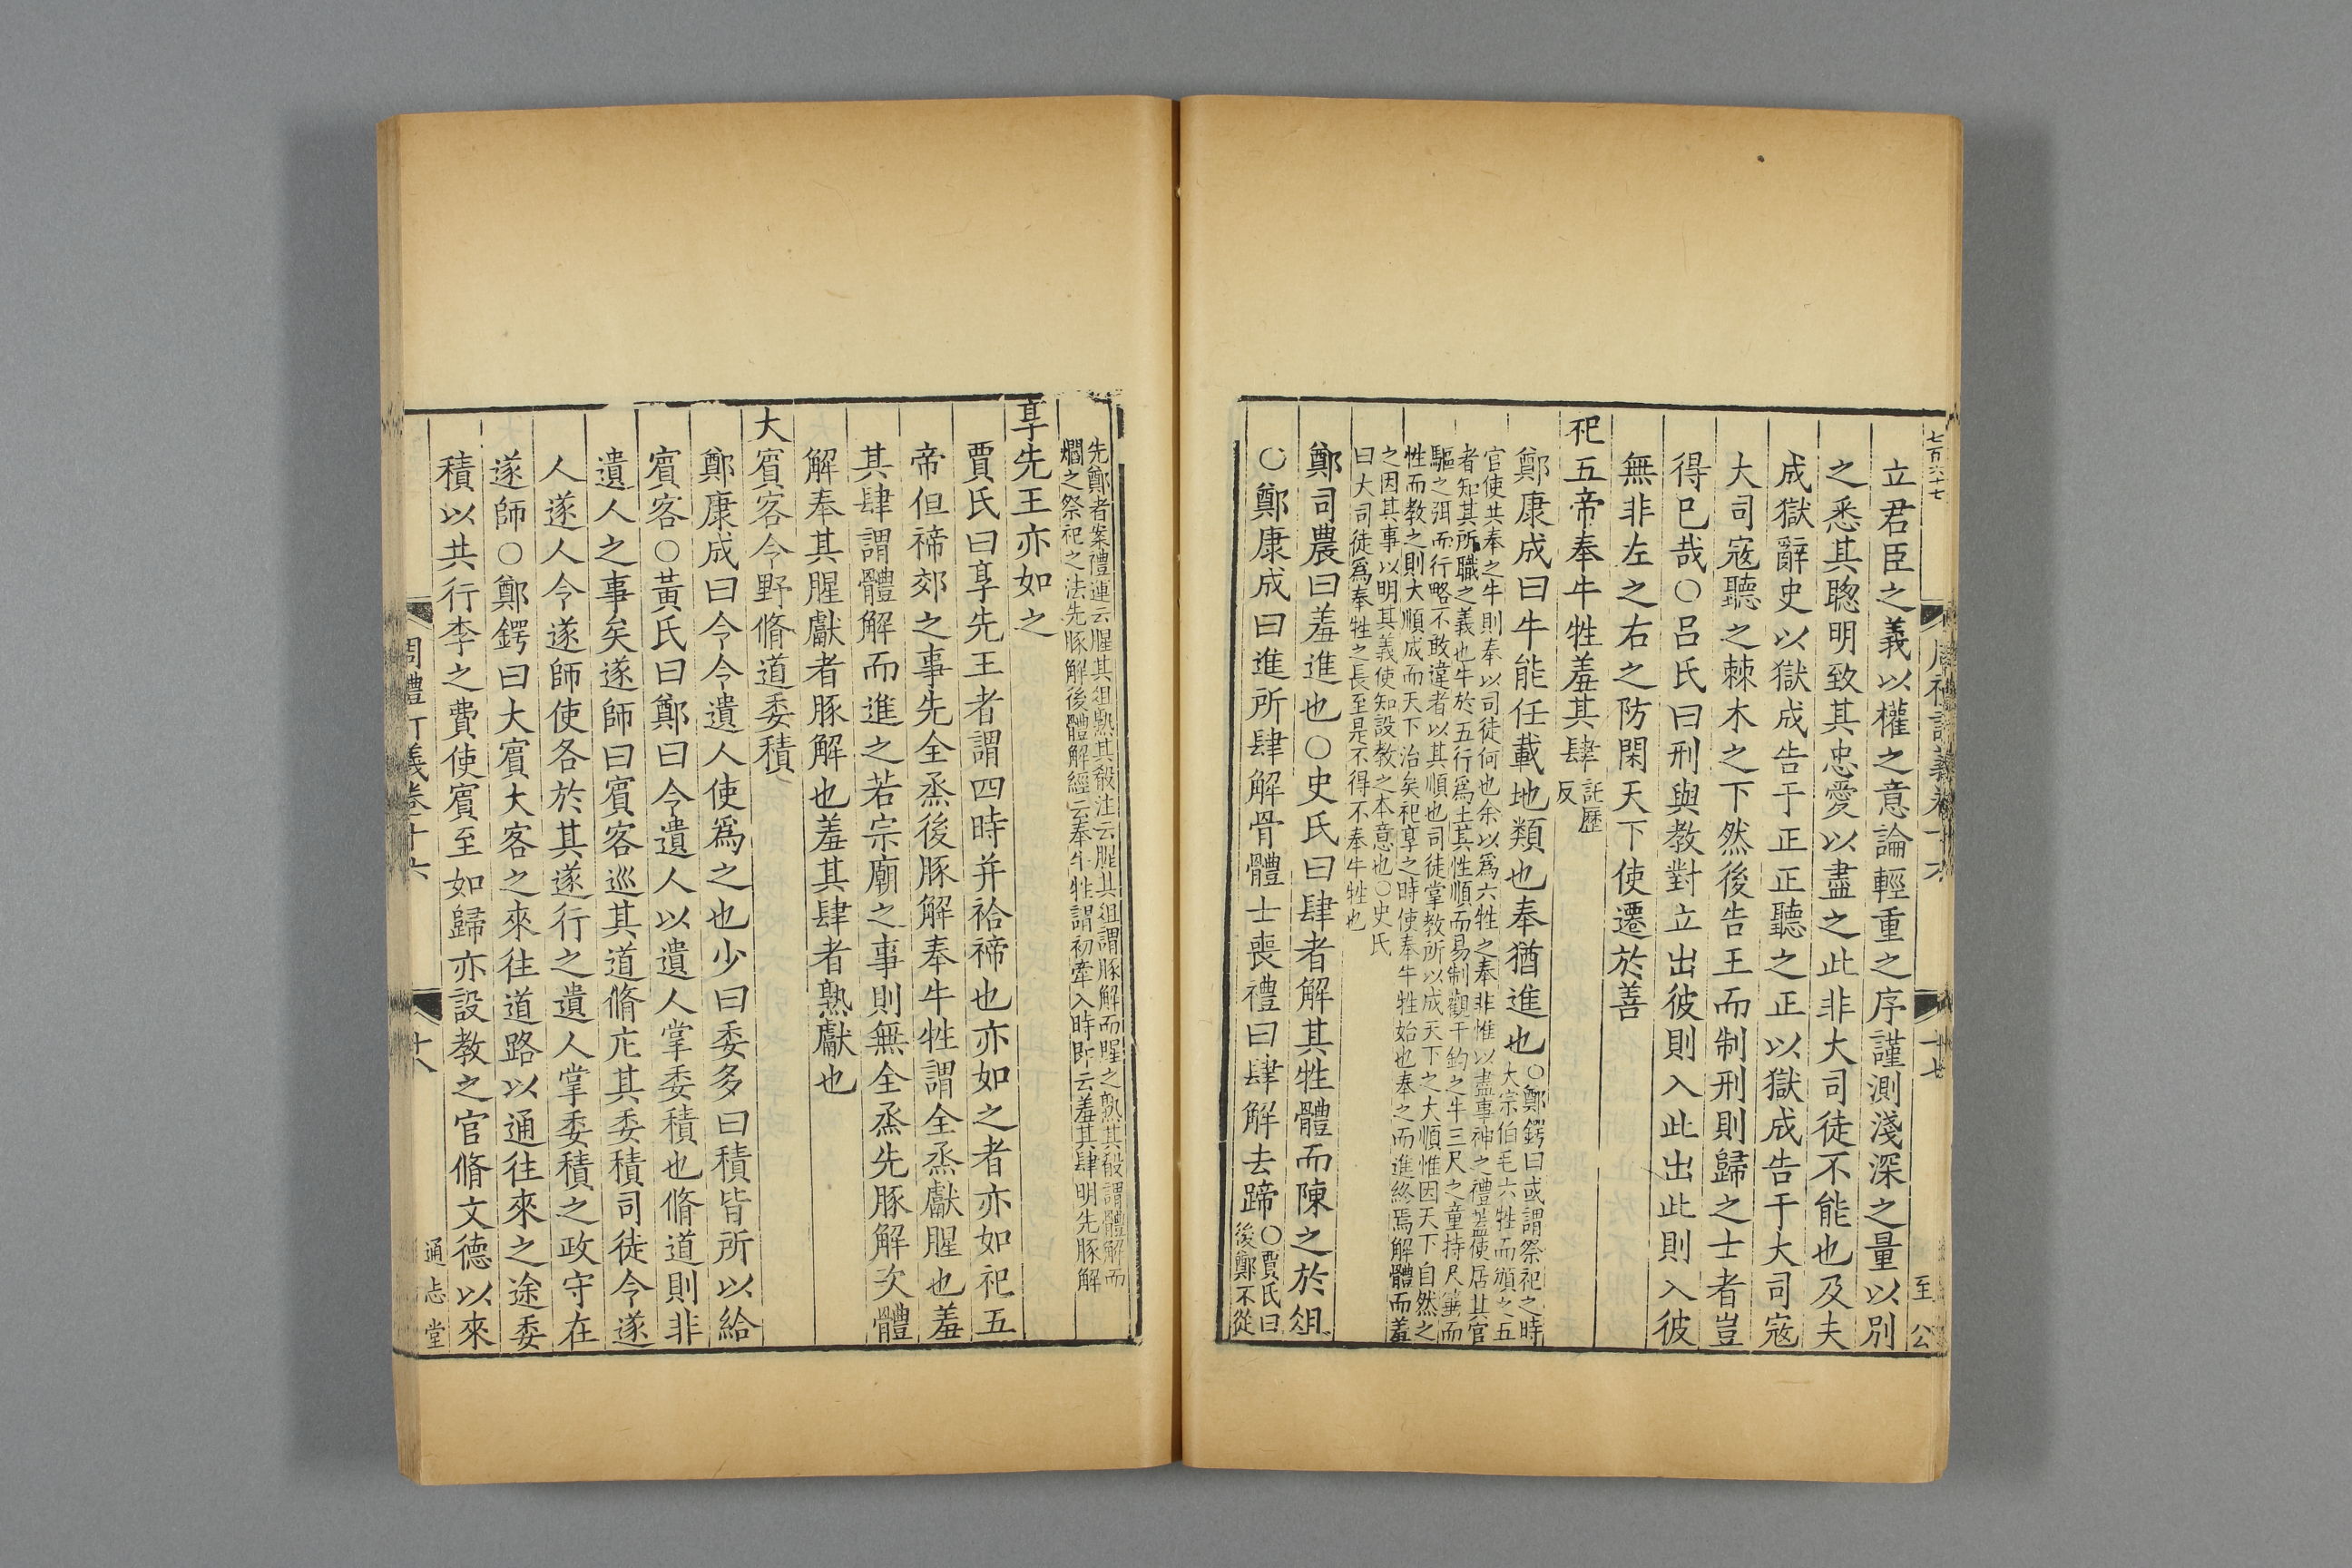 七百六十七
周禮訂義卷十六
十七
至 公
立君臣之義以權之意論輕重之序謹測淺深之量以別
之悉其聦明致其忠愛以盡之此非大司徒不能也及夫
成獄辭史以獄成告于正正聽之正以獄成告于大司寇
大司寇聽之棘木之下然後告王而制刑則歸之士者豈
得已哉○呂氏曰刑與教對立出彼則入此出此則入彼
無非左之右之防閑天下使遷於善
祀五帝奉牛牲羞其肆託歷反
鄭康成曰牛能任載地類也奉猶進也○鄭鍔曰或謂祭祀之時
大宗伯毛六牲而頒之五
官使共奉之牛則奉以司徒何也余以爲六牲之奉非惟以盡事神之禮蓋使居其官
者知其所職之義也牛於五行爲土其性順而易制觀千鈞之牛三尺之童持尺箠而
驅之弭而行略不敢違者以其順也司徒掌教所以成天下之大順惟因天下自然之
性而教之則大順成而天下治矣祀享之時使奉牛牲始也奉之而進終焉解體而羞
之因其事以明其義使知設教之本意也○史氏
曰大司徒爲奉牲之長至是不得不奉牛牲也
鄭司農曰羞進也○史氏曰肆者解其牲體而陳之於俎
○鄭康成曰進所肆解骨體士喪禮曰肆解去蹄○賈氏曰
後鄭不從
先鄭者案禮運云腥其俎熟其殽注云腥其俎謂豚解而腥之熟其殽謂體解而
爓之祭祀之法先豚解後體解經云奉牛牲謂初牽入時即云羞其肆明先豚解
享先王亦如之
賈氏曰享先王者謂四時并祫禘也亦如之者亦如祀五
帝但禘郊之事先全烝後豚解奉牛牲謂全烝獻腥也羞
其肆謂體解而進之若宗廟之事則無全烝先豚解次體
解奉其腥獻者豚解也羞其肆者熟獻也
大賓客令野脩道委積
鄭康成曰令令遺人使爲之也少曰委多曰積皆所以給
賓客○黃氏曰鄭曰令遺人以遺人掌委積也脩道則非
遺人之事矣遂師曰賓客巡其道脩庀其委積司徒令遂
人遂人令遂師使各於其遂行之遺人掌委積之政守在
遂師○鄭鍔曰大賓大客之來往道路以通往來之途委
積以共行李之費使賓至如歸亦設教之官脩文德以來
周禮訂義卷十六
十八
通志堂